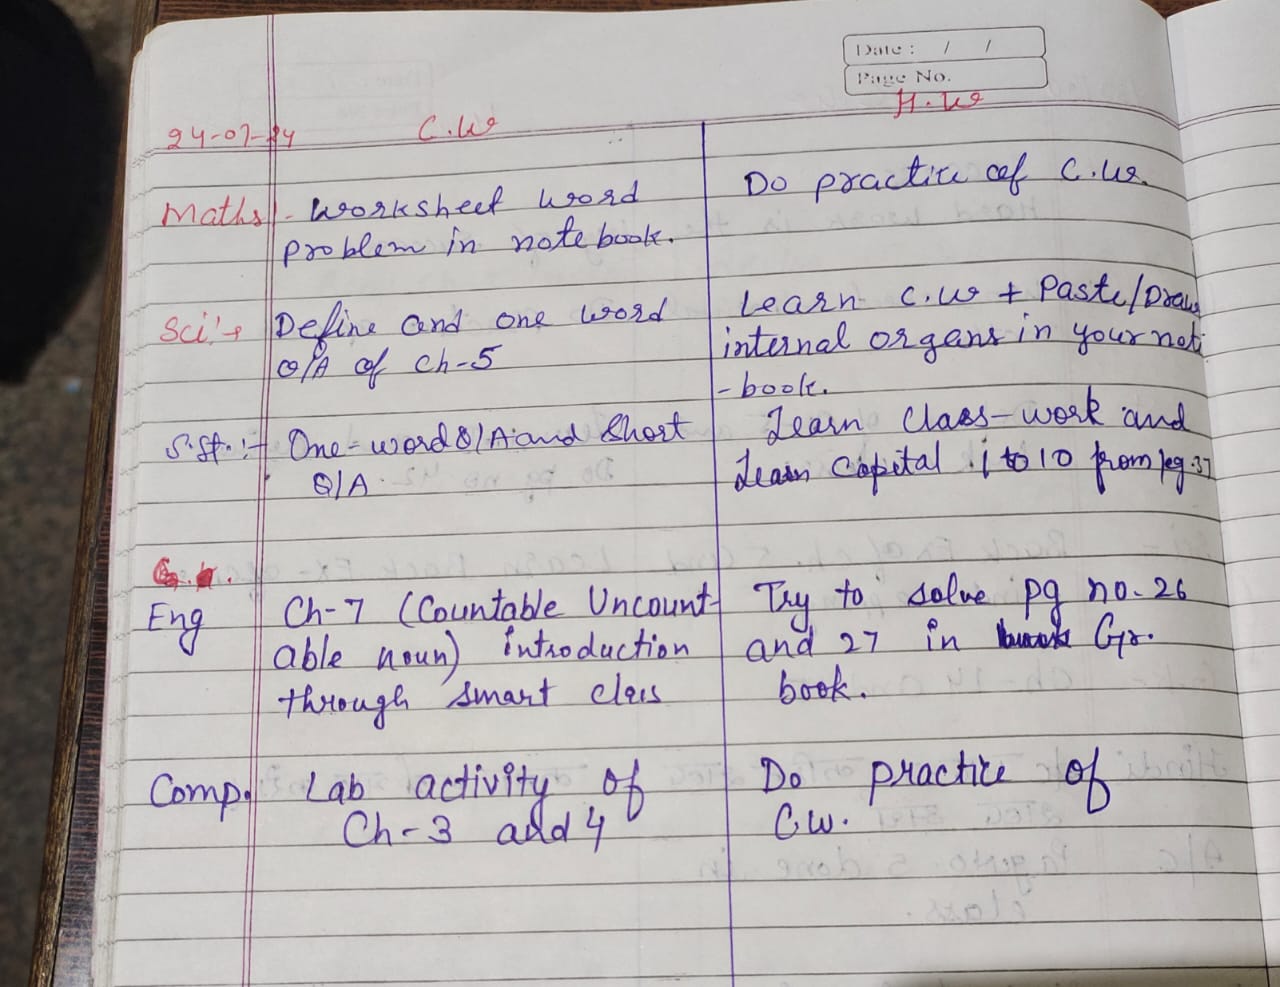 Date : / /
Page No.
24-07-24 C.W H.W
Maths - Worksheet word
problem in notebook.
Do practice of C.W.
Sci:→ Define and one word
Q/A of Ch-5
Learn C.W + Paste/Draw
internal organs in your note
-book.
S.St.:- One-word Q/A and Short
Q/A.
Learn Class-work and
Learn Capital 1 to 10 from pg.37
Eng Ch-7 (Countable Uncount-
able noun) introduction
through smart class
Try to solve pg no. 26
and 27 in Gr.
book.
Comp. Lab activity of
Ch-3 and 4
Do practice of
C.W.